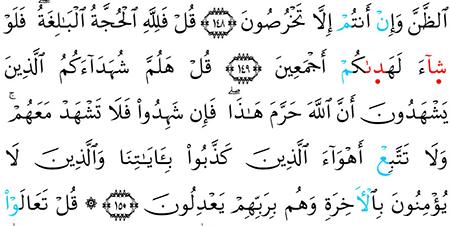 ٱلظَّنَّ وَإِنۡ أَنتُمۡ إِلَّا تَخۡرُصُونَ ١٤٨ قُلۡ فَلِلَّهِ ٱلۡحُجَّةُ ٱلۡبَٰلِغَةُۖ فَلَوۡ
شَآءَ لَهَدَىٰكُمۡ أَجۡمَعِينَ ١٤٩ قُلۡ هَلُمَّ شُهَدَآءَكُمُ ٱلَّذِينَ
يَشۡهَدُونَ أَنَّ ٱللَّهَ حَرَّمَ هَٰذَاۖ فَإِن شَهِدُواْ فَلَا تَشۡهَدۡ مَعَهُمۡۚ
وَلَا تَتَّبِعۡ أَهۡوَآءَ ٱلَّذِينَ كَذَّبُواْ بِـَٔايَٰتِنَا وَٱلَّذِينَ لَا
يُؤۡمِنُونَ بِٱلۡأَخِرَةِ وَهُم بِرَبِّهِمۡ يَعۡدِلُونَ ١٥٠ ۞ قُلۡ تَعَالَوۡاْ